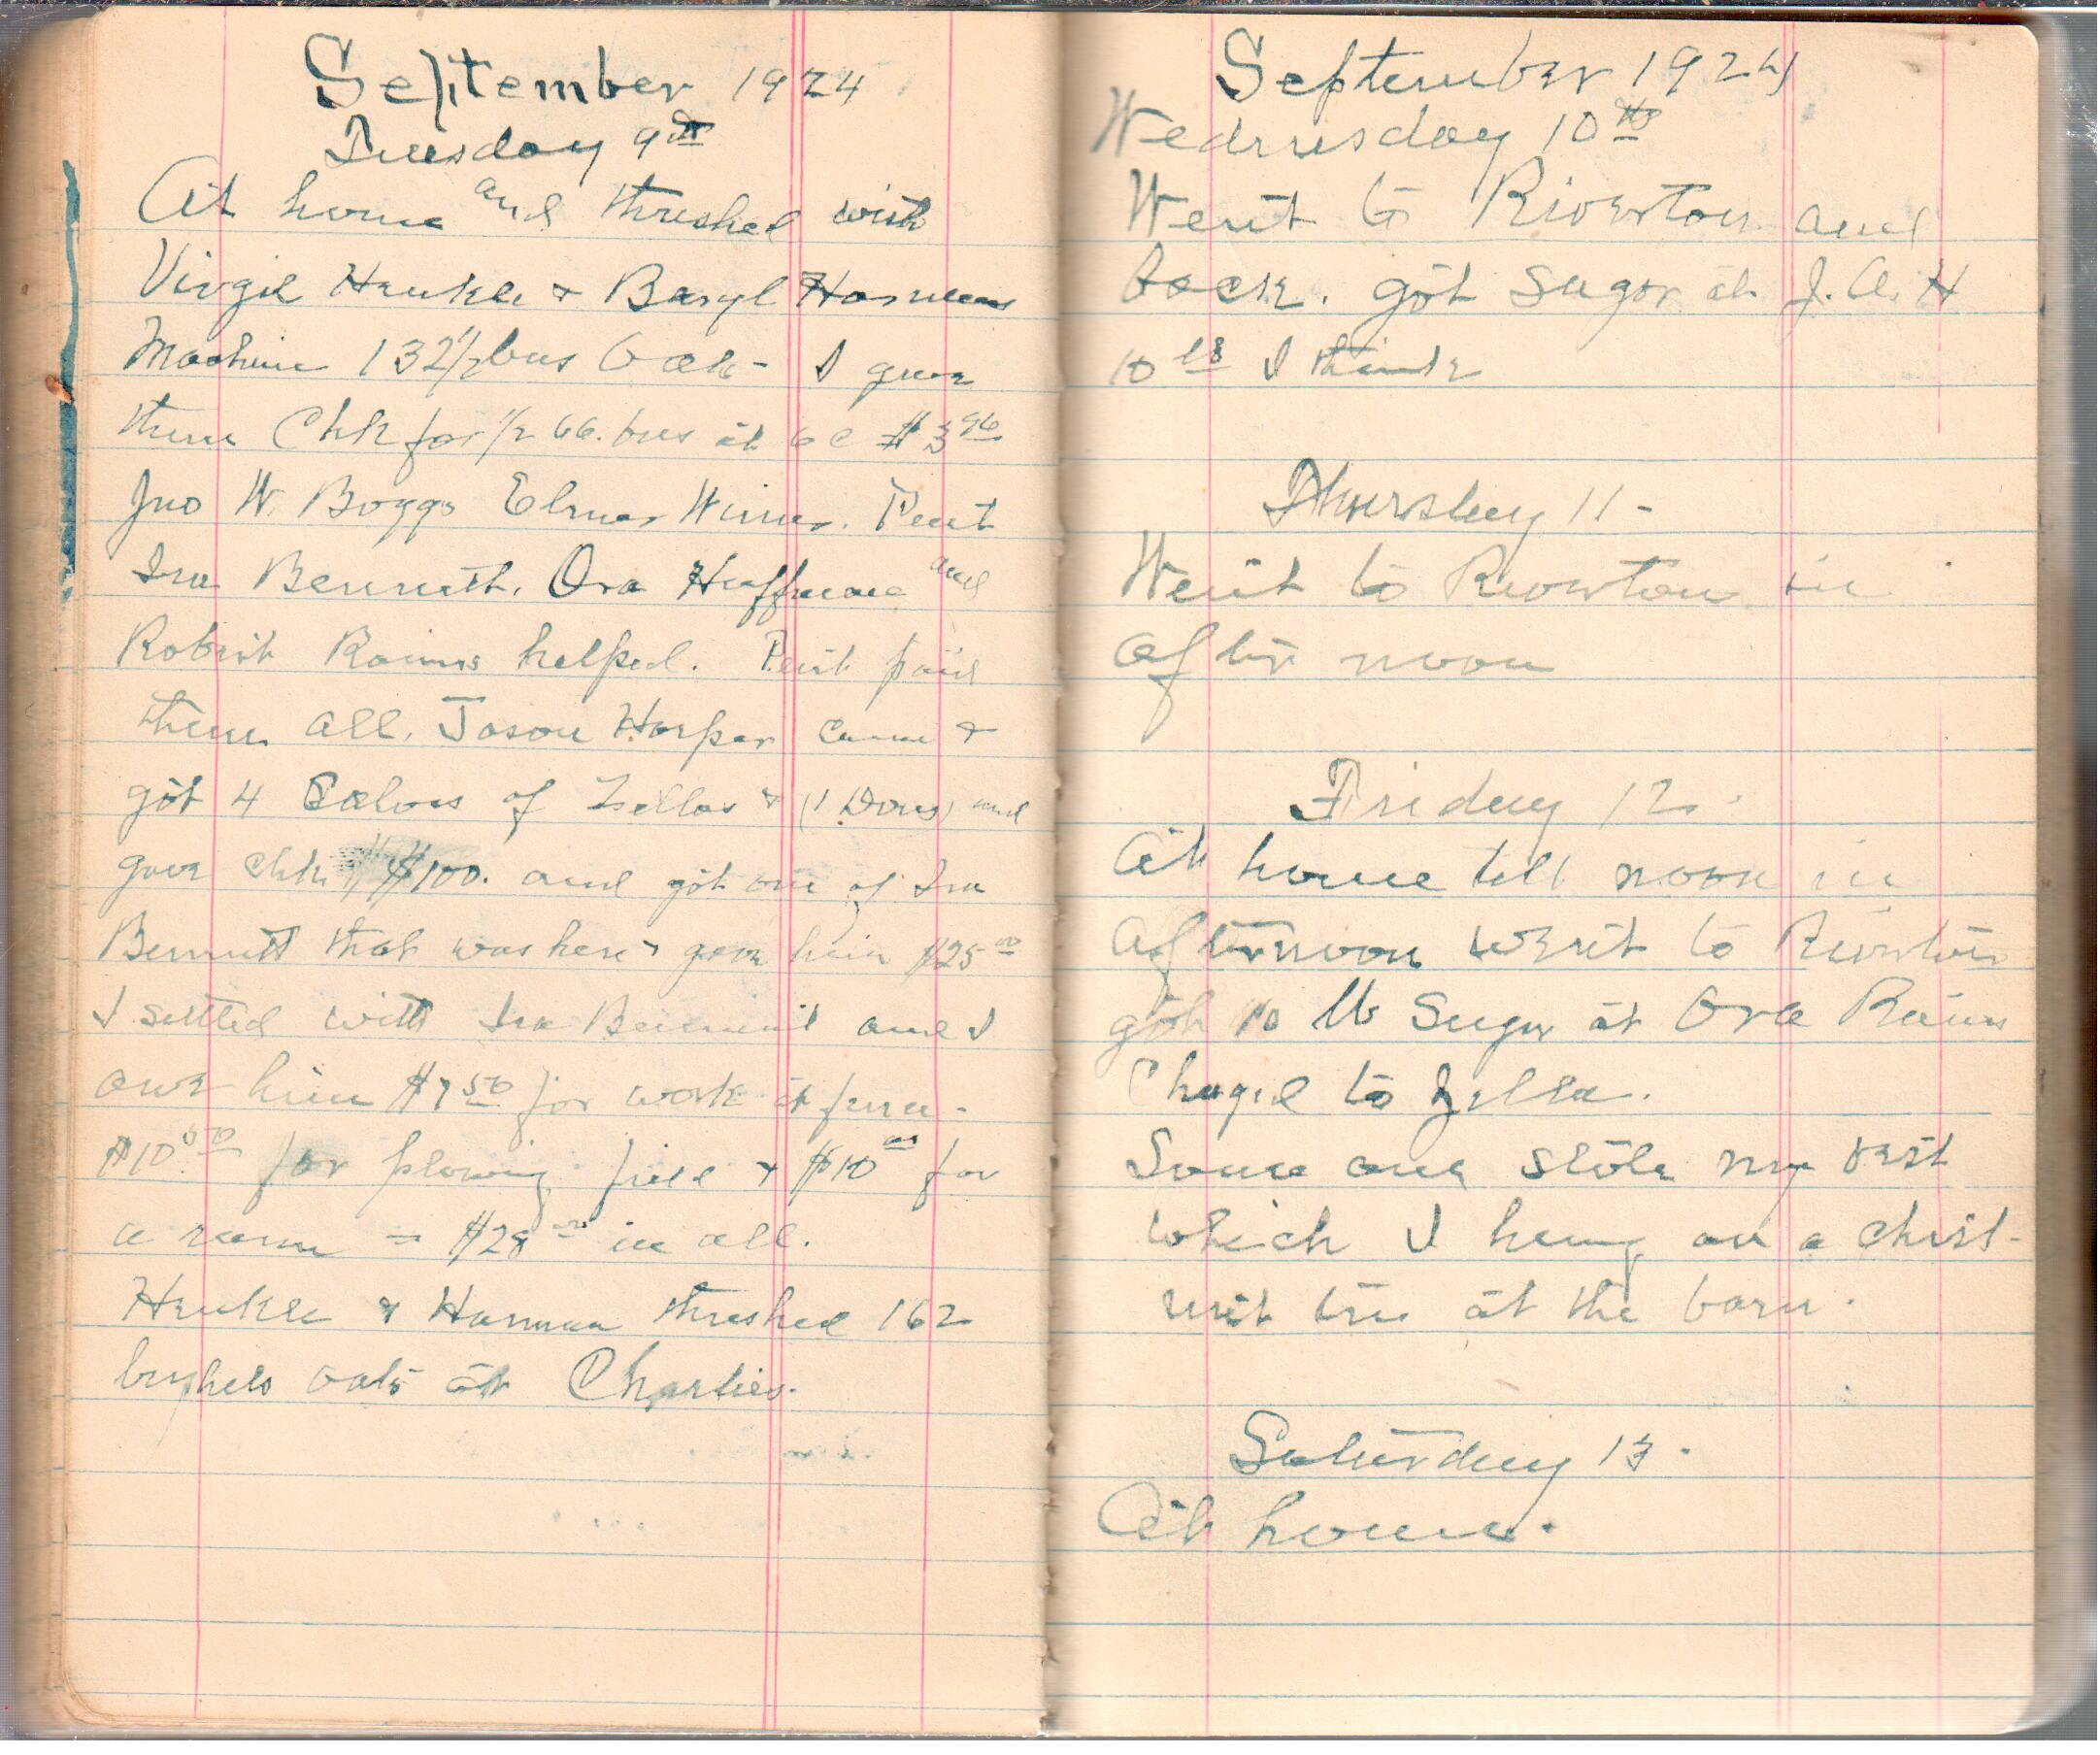 September 1924
Tuesday 9th
At home and threshed with
Virgil Henkle & Baryl Harman
Machine 132 1/2 bus Oats - I gave
them Chk for 1/2 66. bus at 6 c $3 96
Jno W. Boggs Elmer Wimer. Peut
Ira Bennett. Ora Huffman and
Robert Raines helped. Peut paid
them all. Jason Harper came &
got 4 Calves of Zellas & (1 Dous) and
gave chk $100. and got one of Ira
Bennett that was here & gave him $25 00
I settled with Ira Bennett and I
owe him $7 50 for work at farm -
$10 50 for plowing field & $10 00 for
a ram = $28 00 in all.
Henkle & Harman threshed 162
bushels oats at Charlies.
September 1924
Wednesday 10th
Went to Riverton and
back. got sugar at J. A. H
10 lb I think
Thursday 11 -
Went to Riverton in
after noon
Friday 12.
At home till noon in
afternoon went to Riverton
got 10 lb Sugar at Ora Raines
Chaged to Zella.
Some one stole my vest
which I hung on a chest-
nut tree at the barn.
Saturday 13.
At home.